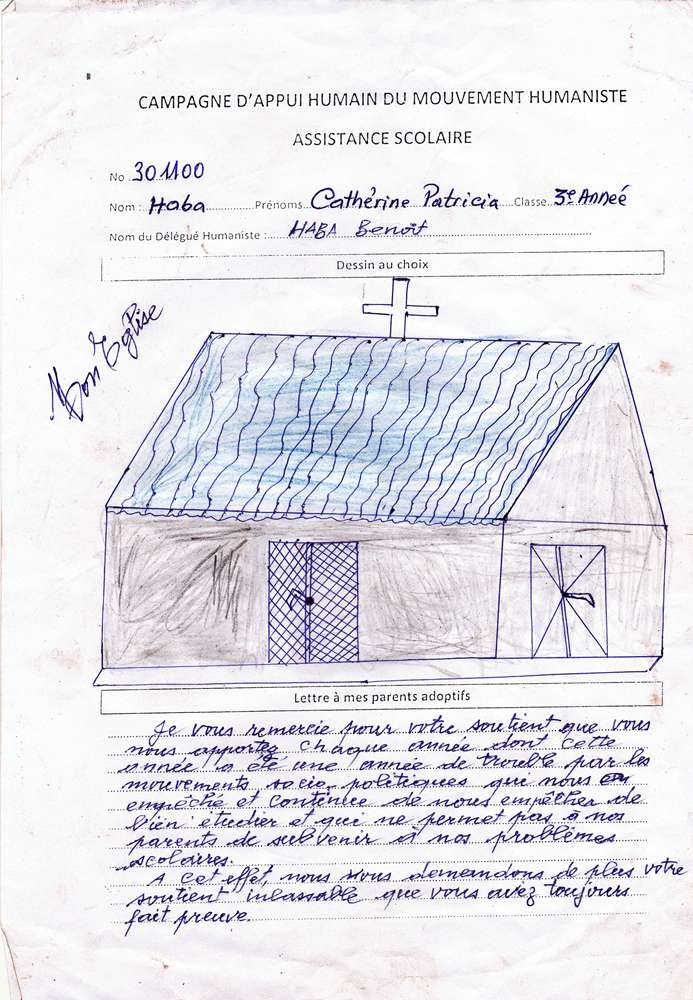 CAMPAGNE D'APPUI HUMAIN DU MOUVEMENT HUMANISTE
ASSISTANCE SCOLAIRE
No 301100
Nom : Haba Prénoms Cathérine Patricia Classe 3e Anneé
Nom du Délégué Humaniste : HABA Benoît
Dessin au choix
Mon Eglise
Lettre à mes parents adoptifs
Je vous remercie pour votre soutient que vous
nous apportez chaque année dont cette
année a été une année de trouble par les
mouvements socio-politiques qui nous en
empêché et continue de nous empêcher de
bien étudier et qui ne permet pas à nos
parents de subvenir à nos problèmes
scolaires.
A cet effet, nous vous demandons de plus votre
soutient inlassable que vous avez toujours
fait preuve.